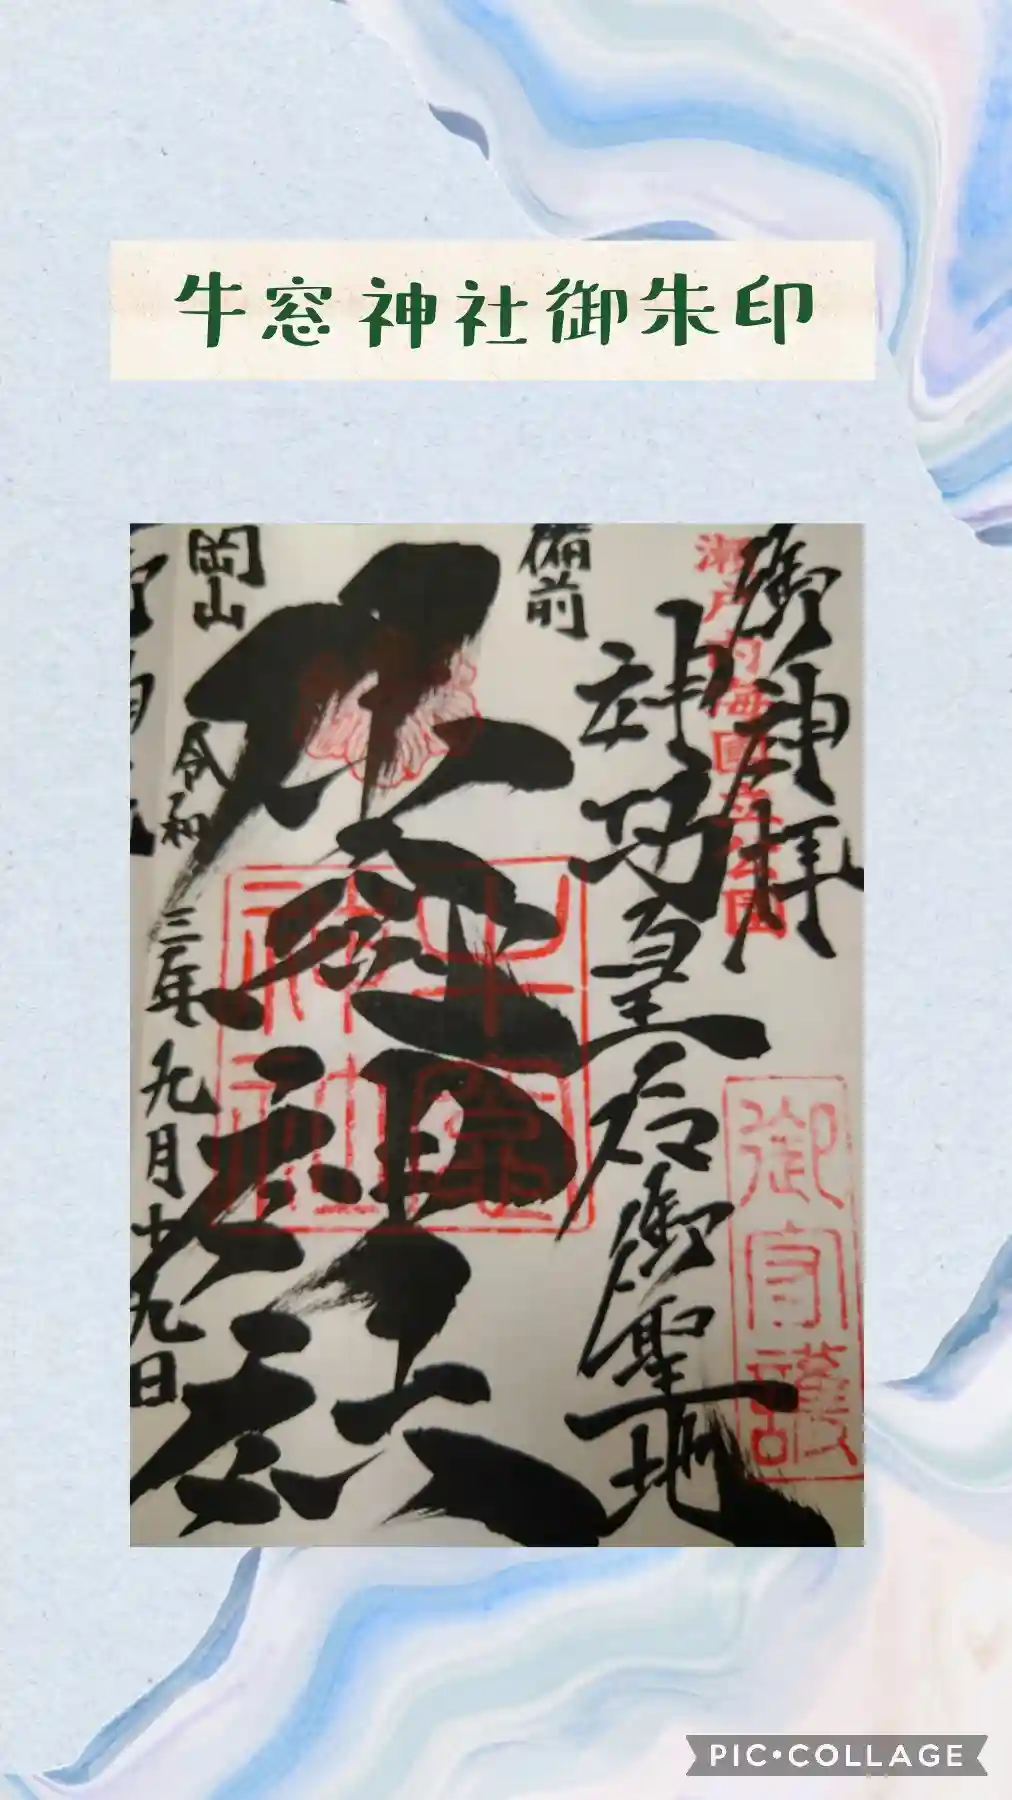 牛窓神社御朱印
御神拝
瀬戸内海國立公園
神功皇后御聖地
御守護
備前
牛窓神社
牛窓
神社
岡山
令和三年九月十九日
PIC•COLLAGE